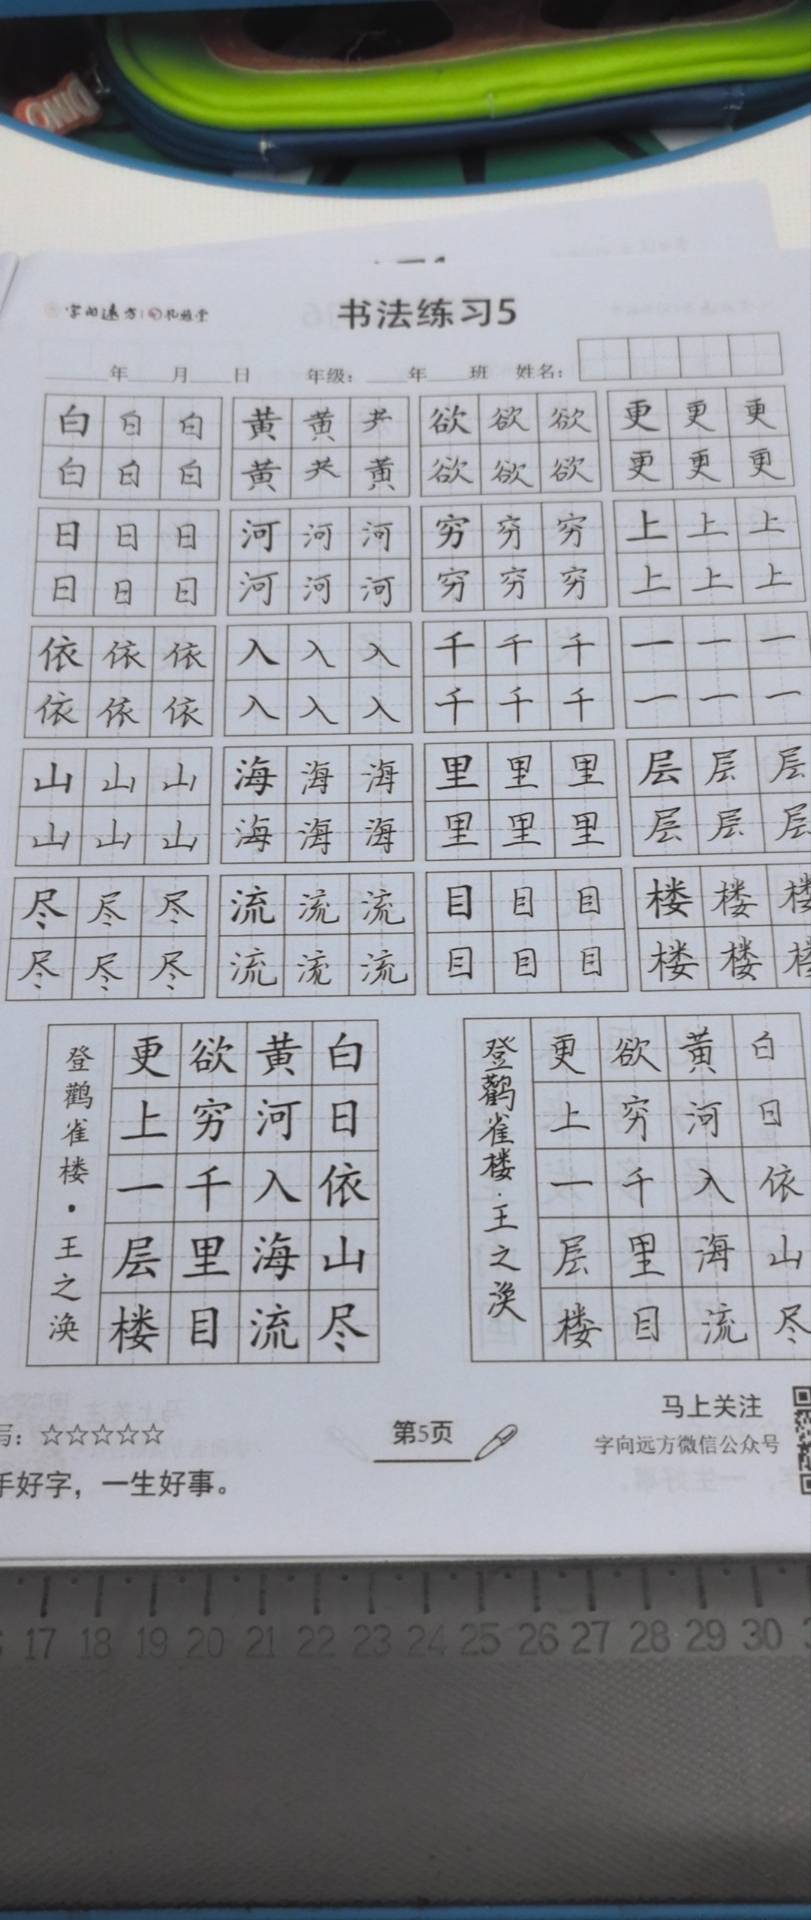 字向远方
书法练习5
年 月 日 年级： 年 班 姓名：
白白白 黄黄 欲欲欲 更更更
白白白 黄 黄 欲欲欲 更更更
日日日 河河河 穷穷穷 上上上
日日日 河河河 穷穷穷 上上上
依依依 入入入 千千千 一一一
依依依 入入入 千千千 一一一
山山山 海海海 里里里 层层层
山山山 海海海 里里里 层层层
尽尽尽 流流流 目目目 楼楼楼
尽尽尽 流流流 目目目 楼楼楼
白日依山尽
黄河入海流
欲穷千里目
更上一层楼
登鹳雀楼·王之涣
白日依山尽
黄河入海流
欲穷千里目
更上一层楼
登鹳雀楼·王之涣
写：☆☆☆☆☆
手好字，一生好事。
第5页
马上关注
字向远方微信公众号
17 18 19 20 21 22 23 24 25 26 27 28 29 30